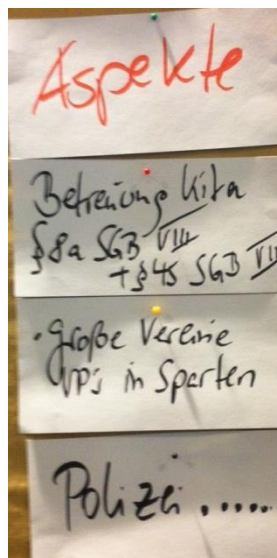 Aspekte
Betreuung Kita
§ 8a SGB VIII
+ § 45 SGB VIII
• große Vereine
VP's in Sparten
Polizei .....